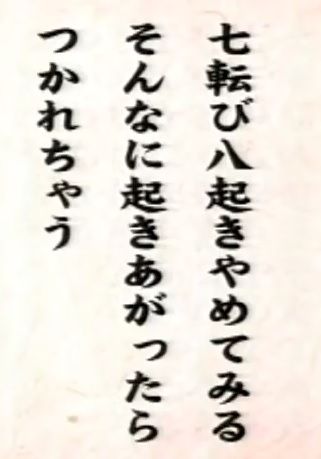 七転び八起きやめてみる
そんなに起きあがったら
つかれちゃう